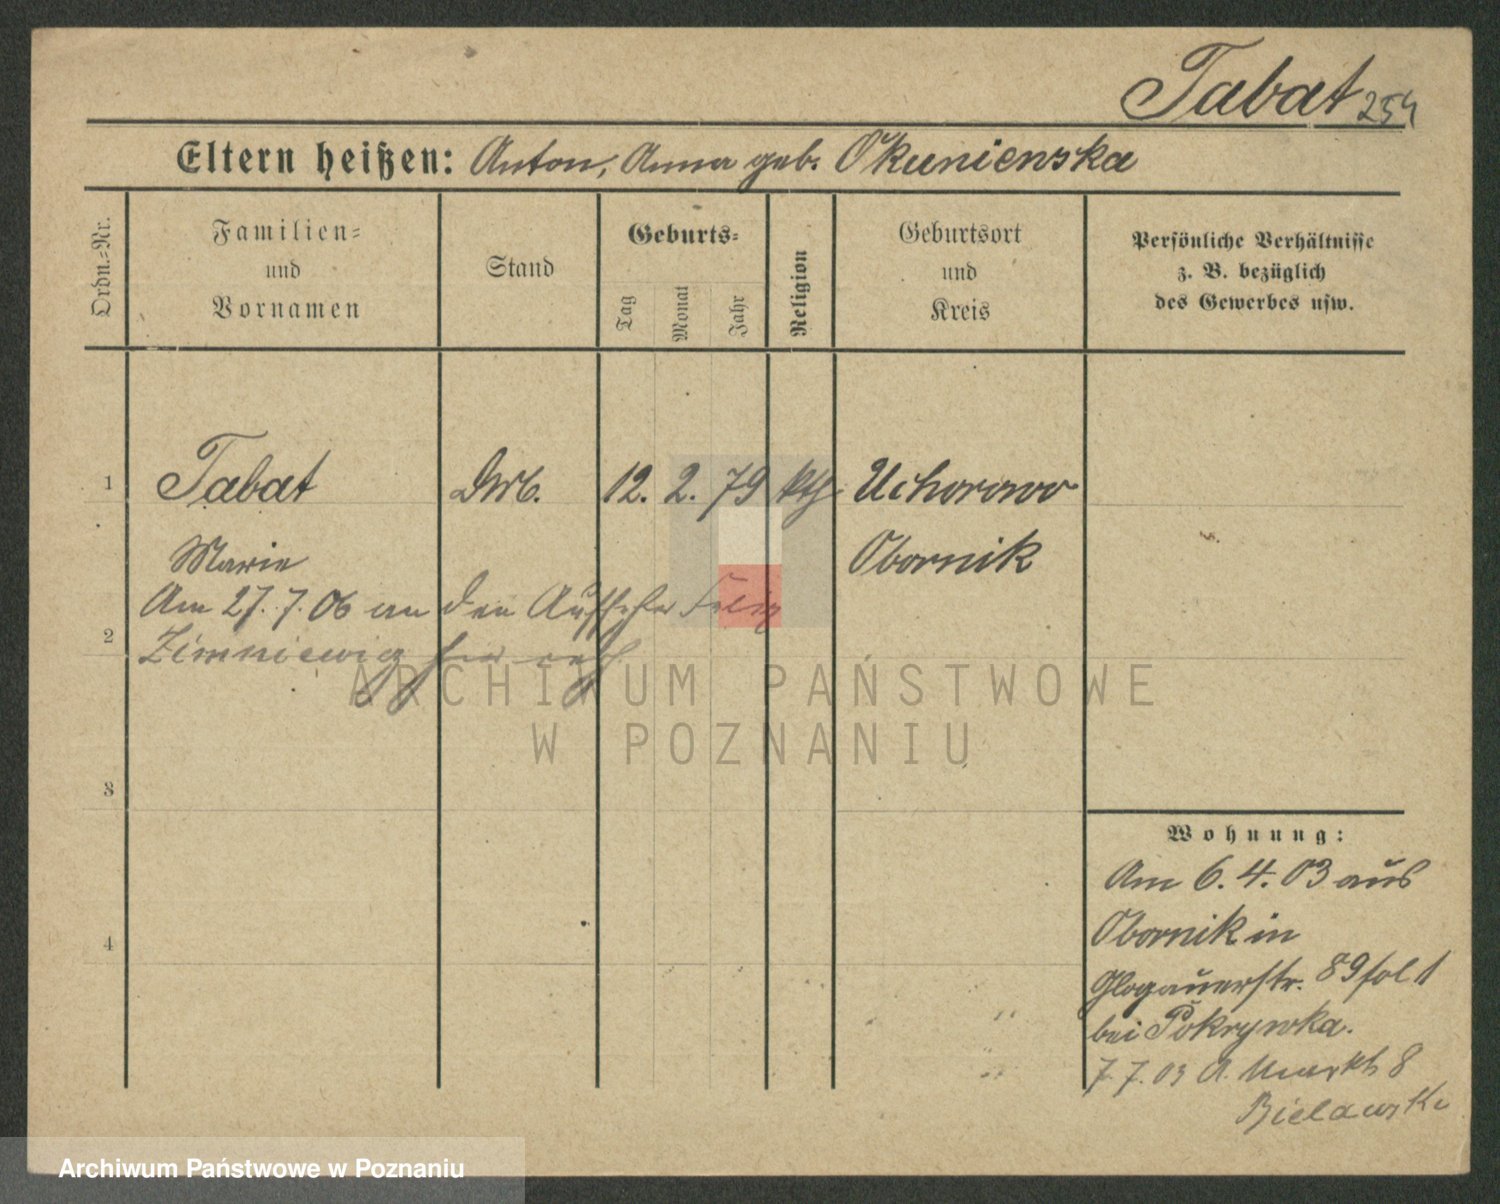 Tabat 254
Eltern heißen: Anton, Anna geb. Okunienska
Ordn.-Nr.
Familien-
und
Vornamen
Stand
Geburts-
Tag
Monat
Jahr
Religion
Geburtsort
und
Kreis
Persönliche Verhältnisse
z. B. bezüglich
des Gewerbes usw.
1 Tabat 12. 2. 79 kth. Uchorowo
Marie Obornik
Am 27.7.06 an den Aufseher Felix
2
Zimniewicz
3
4
Wohnung:
Am 6.4.03 aus
Obornik in
Glogauerstr. 89 fol 1
bei Pokrywka.
7.7.03 A. Markt 8
Bielawski
ARCHIWUM PAŃSTWOWE
W POZNANIU
Archiwum Państwowe w Poznaniu